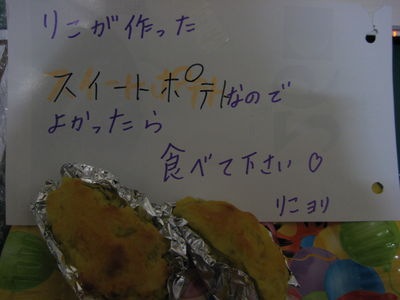 りこが作った
スイートポテトなので
よかったら
食べて下さい♡
りこヨリ